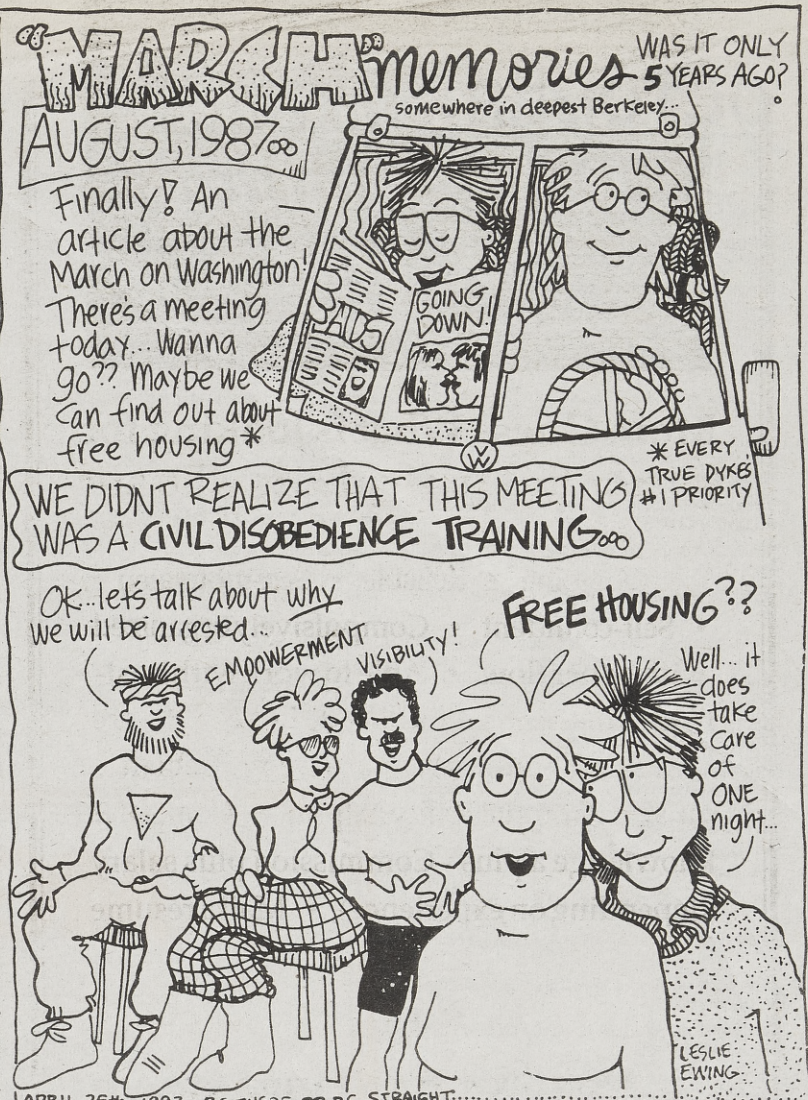 "MARCH" memories
WAS IT ONLY
5 YEARS AGO?
somewhere in deepest Berkeley...
AUGUST, 1987...
Finally! An
article about the
March on Washington!
There's a meeting
today... Wanna
go?? Maybe we
can find out about
free housing *
AIDS
GOING
DOWN!
VW
* EVERY
TRUE DYKE'S
#1 PRIORITY
WE DIDNT REALIZE THAT THIS MEETING
WAS A CIVIL DISOBEDIENCE TRAINING...
OK...let's talk about why
we will be arrested...
EMPOWERMENT
VISIBILITY!
FREE HOUSING??
Well... it
does
take
care
of
ONE
night...
LESLIE
EWING